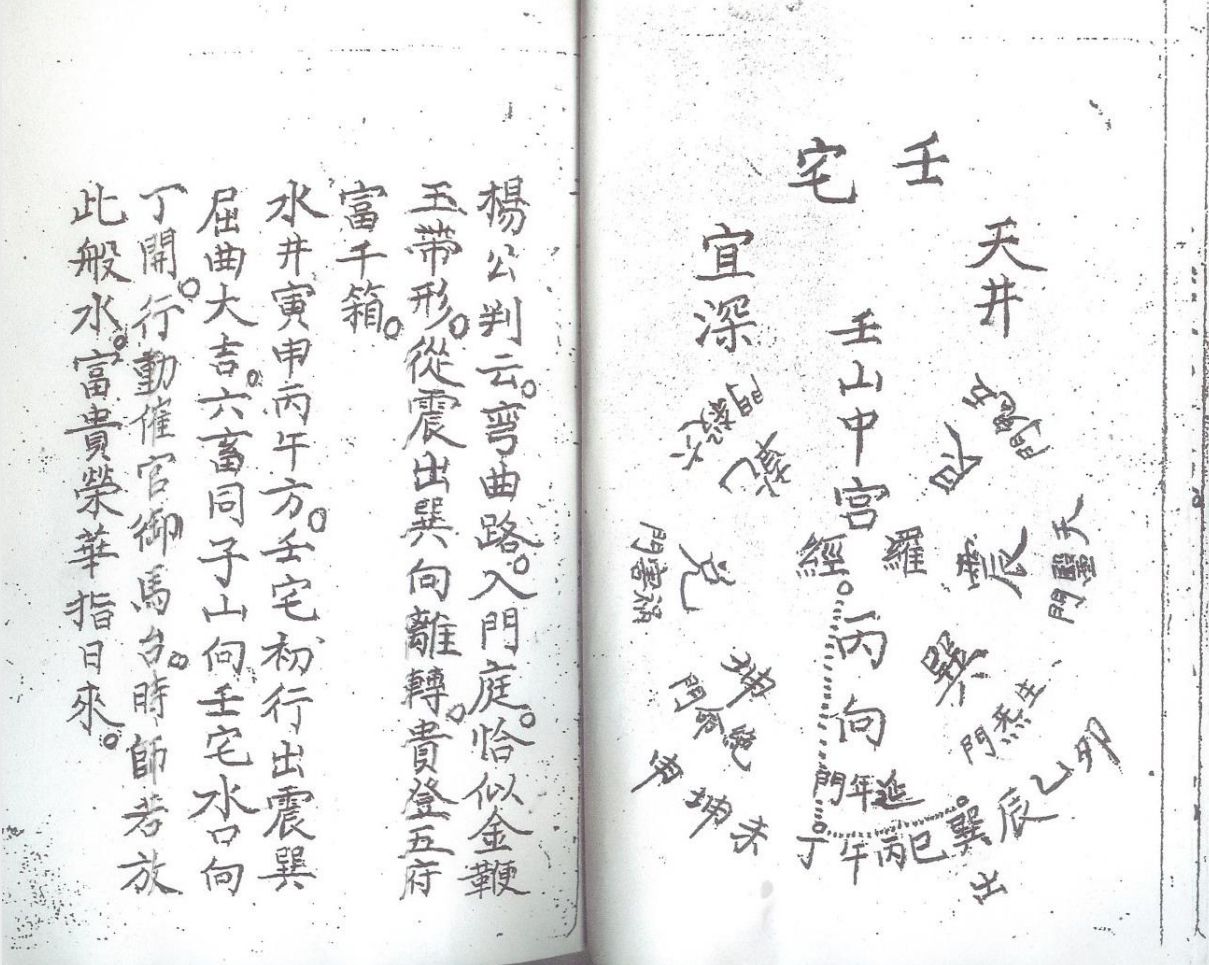 壬宅
天井
宜深
壬山中宮
羅經
丙向
艮
五鬼門
震
天醫門
巽
生炁門
延年門
坤
絕命門
兌
禍害門
乾
六煞門
卯乙辰巽巳丙午丁
出
未坤申
楊公判云。彎曲路。入門庭。恰似金鞭
玉帶形。從震出巽向離轉。貴登五府
富千箱。
水井寅申丙午方。壬宅初行出震巽
屈曲大吉。六畜同子山向壬宅水口向
丁開。行動催官御馬台。時師若放
此般水。富貴榮華指日來。